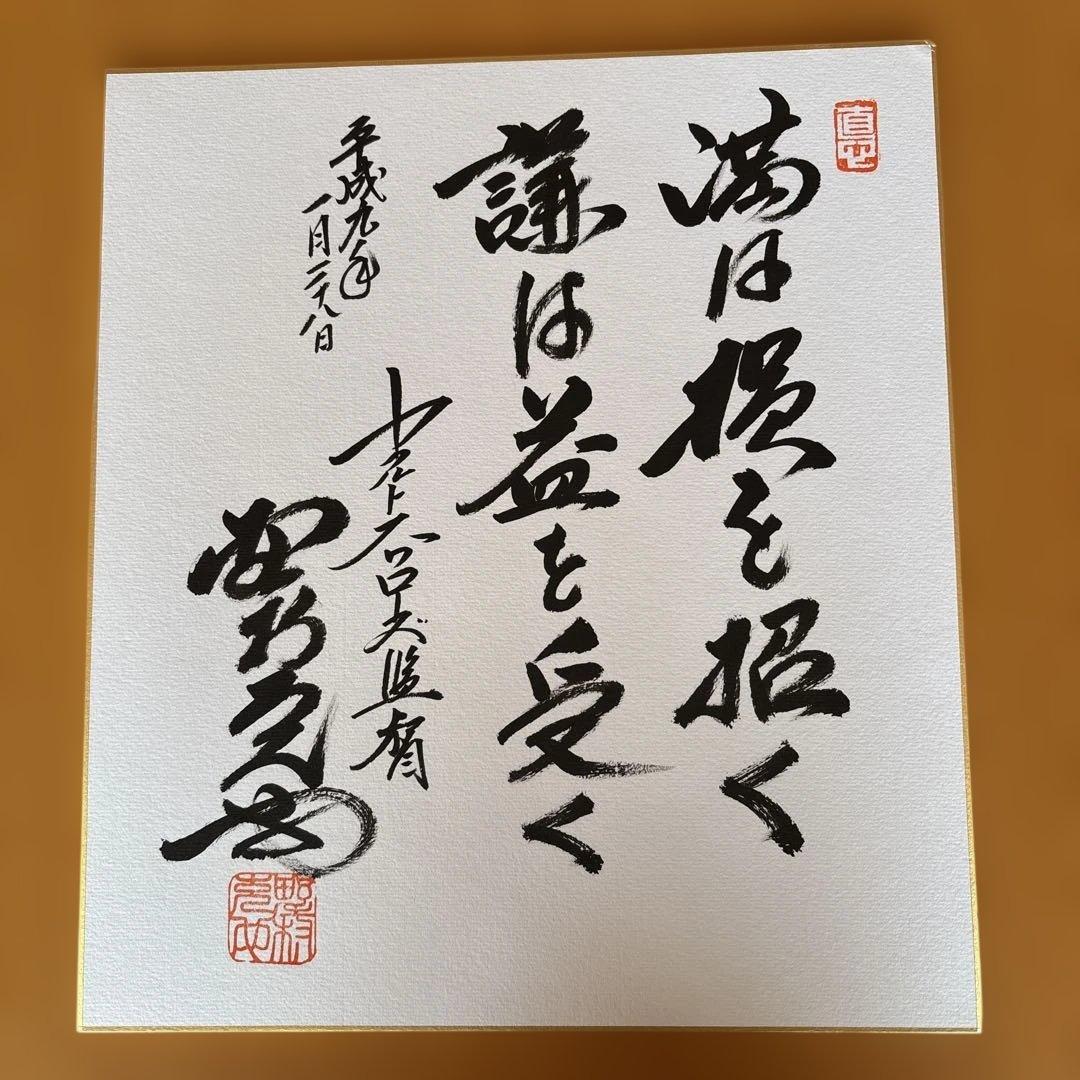 満は損を招く
謙は益を受く
平成九年
一月二十八日
ヤクルトスワローズ監督
野村克也
野村克也